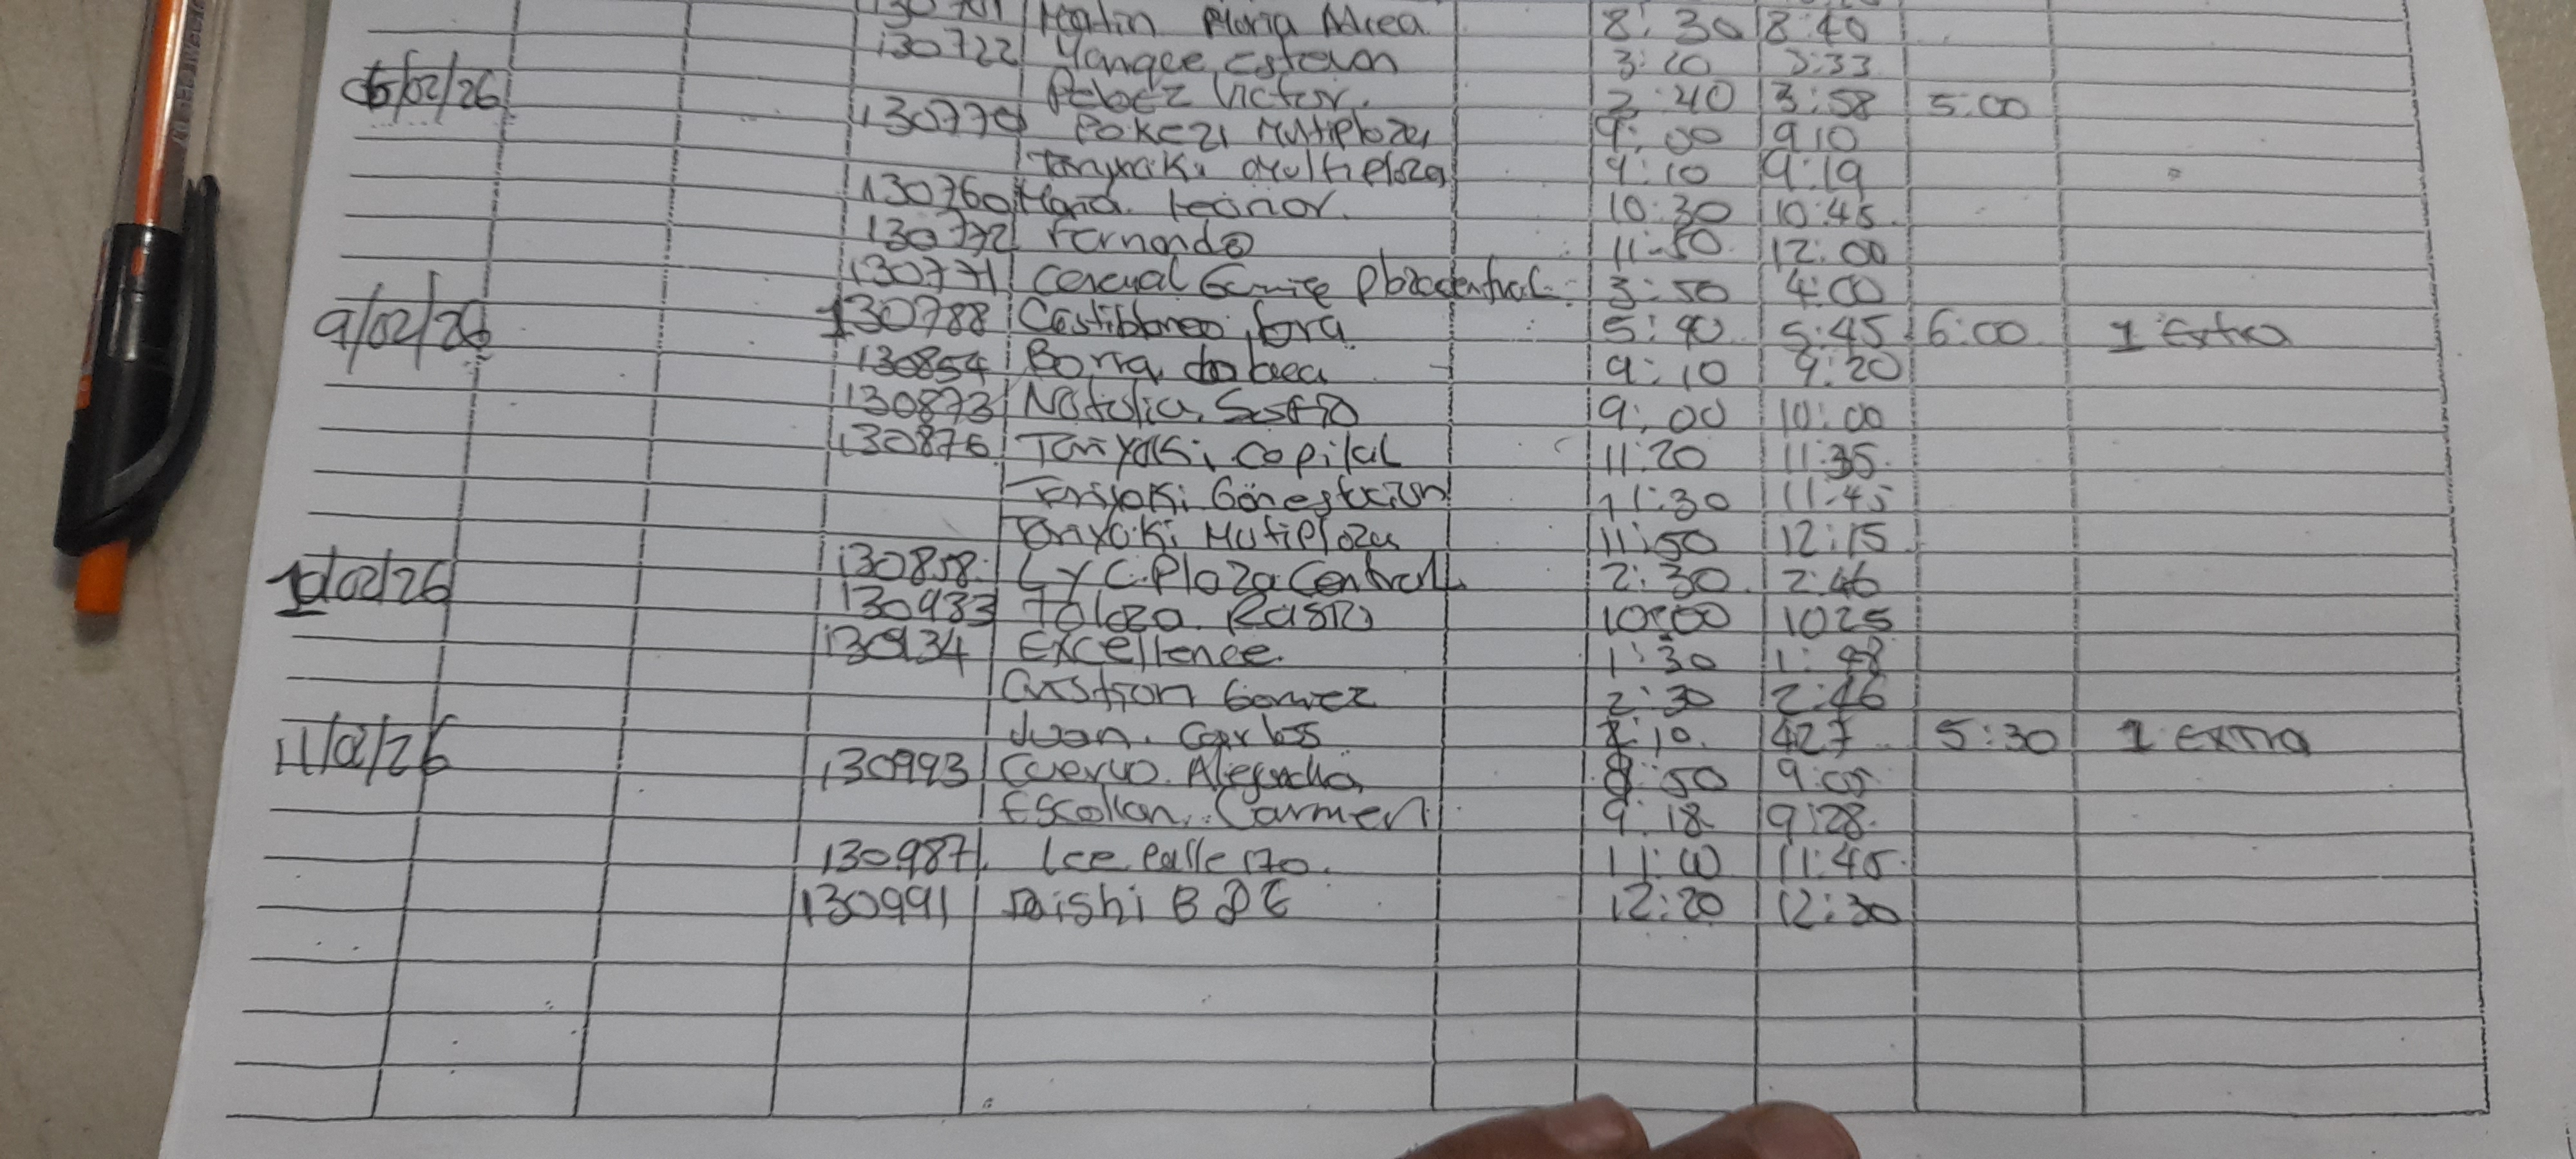 8:30 8:40
130722 Yanque, Estevan 3:20 3:33
6/02/26 Pebez Victor. 2:40 3:58 5:00
130770 Pokezi Multiplaza 9:00 9 10
Tanyaiki Multiplaza 9:10 9:19
130760 Maria Leonor. 10:30 10:45
130772 Fernando 11:50 12:00
130771 Plazacentral 3:50 4:00
9/02/26 130788 Castiblanco, 5:40 5:45 6:00 1 Extra
130854 9:10 9:20
130873 Natalia, 9:00 10:00
130876 Tanyaki Capital 11:20 11:35
11:30 11:45
Tanyaki Mutiplaza 11:50 12:15
10/02/26 130858 L y C. Plaza Central 2:30 2:46
130933 Toloza 10:00 10 25
130934 Excellence. 1:30 1:48
Cristian Gomez 2:30 2:46
Juan. Carlos :10 4 27 5:30 1 Extra
11/02/26 130993 Cuervo. Alejandra 8:50 9:05
Escolian. Carmen 9:18 9:28
130987 11:00 11:45
130991 12:20 12:30